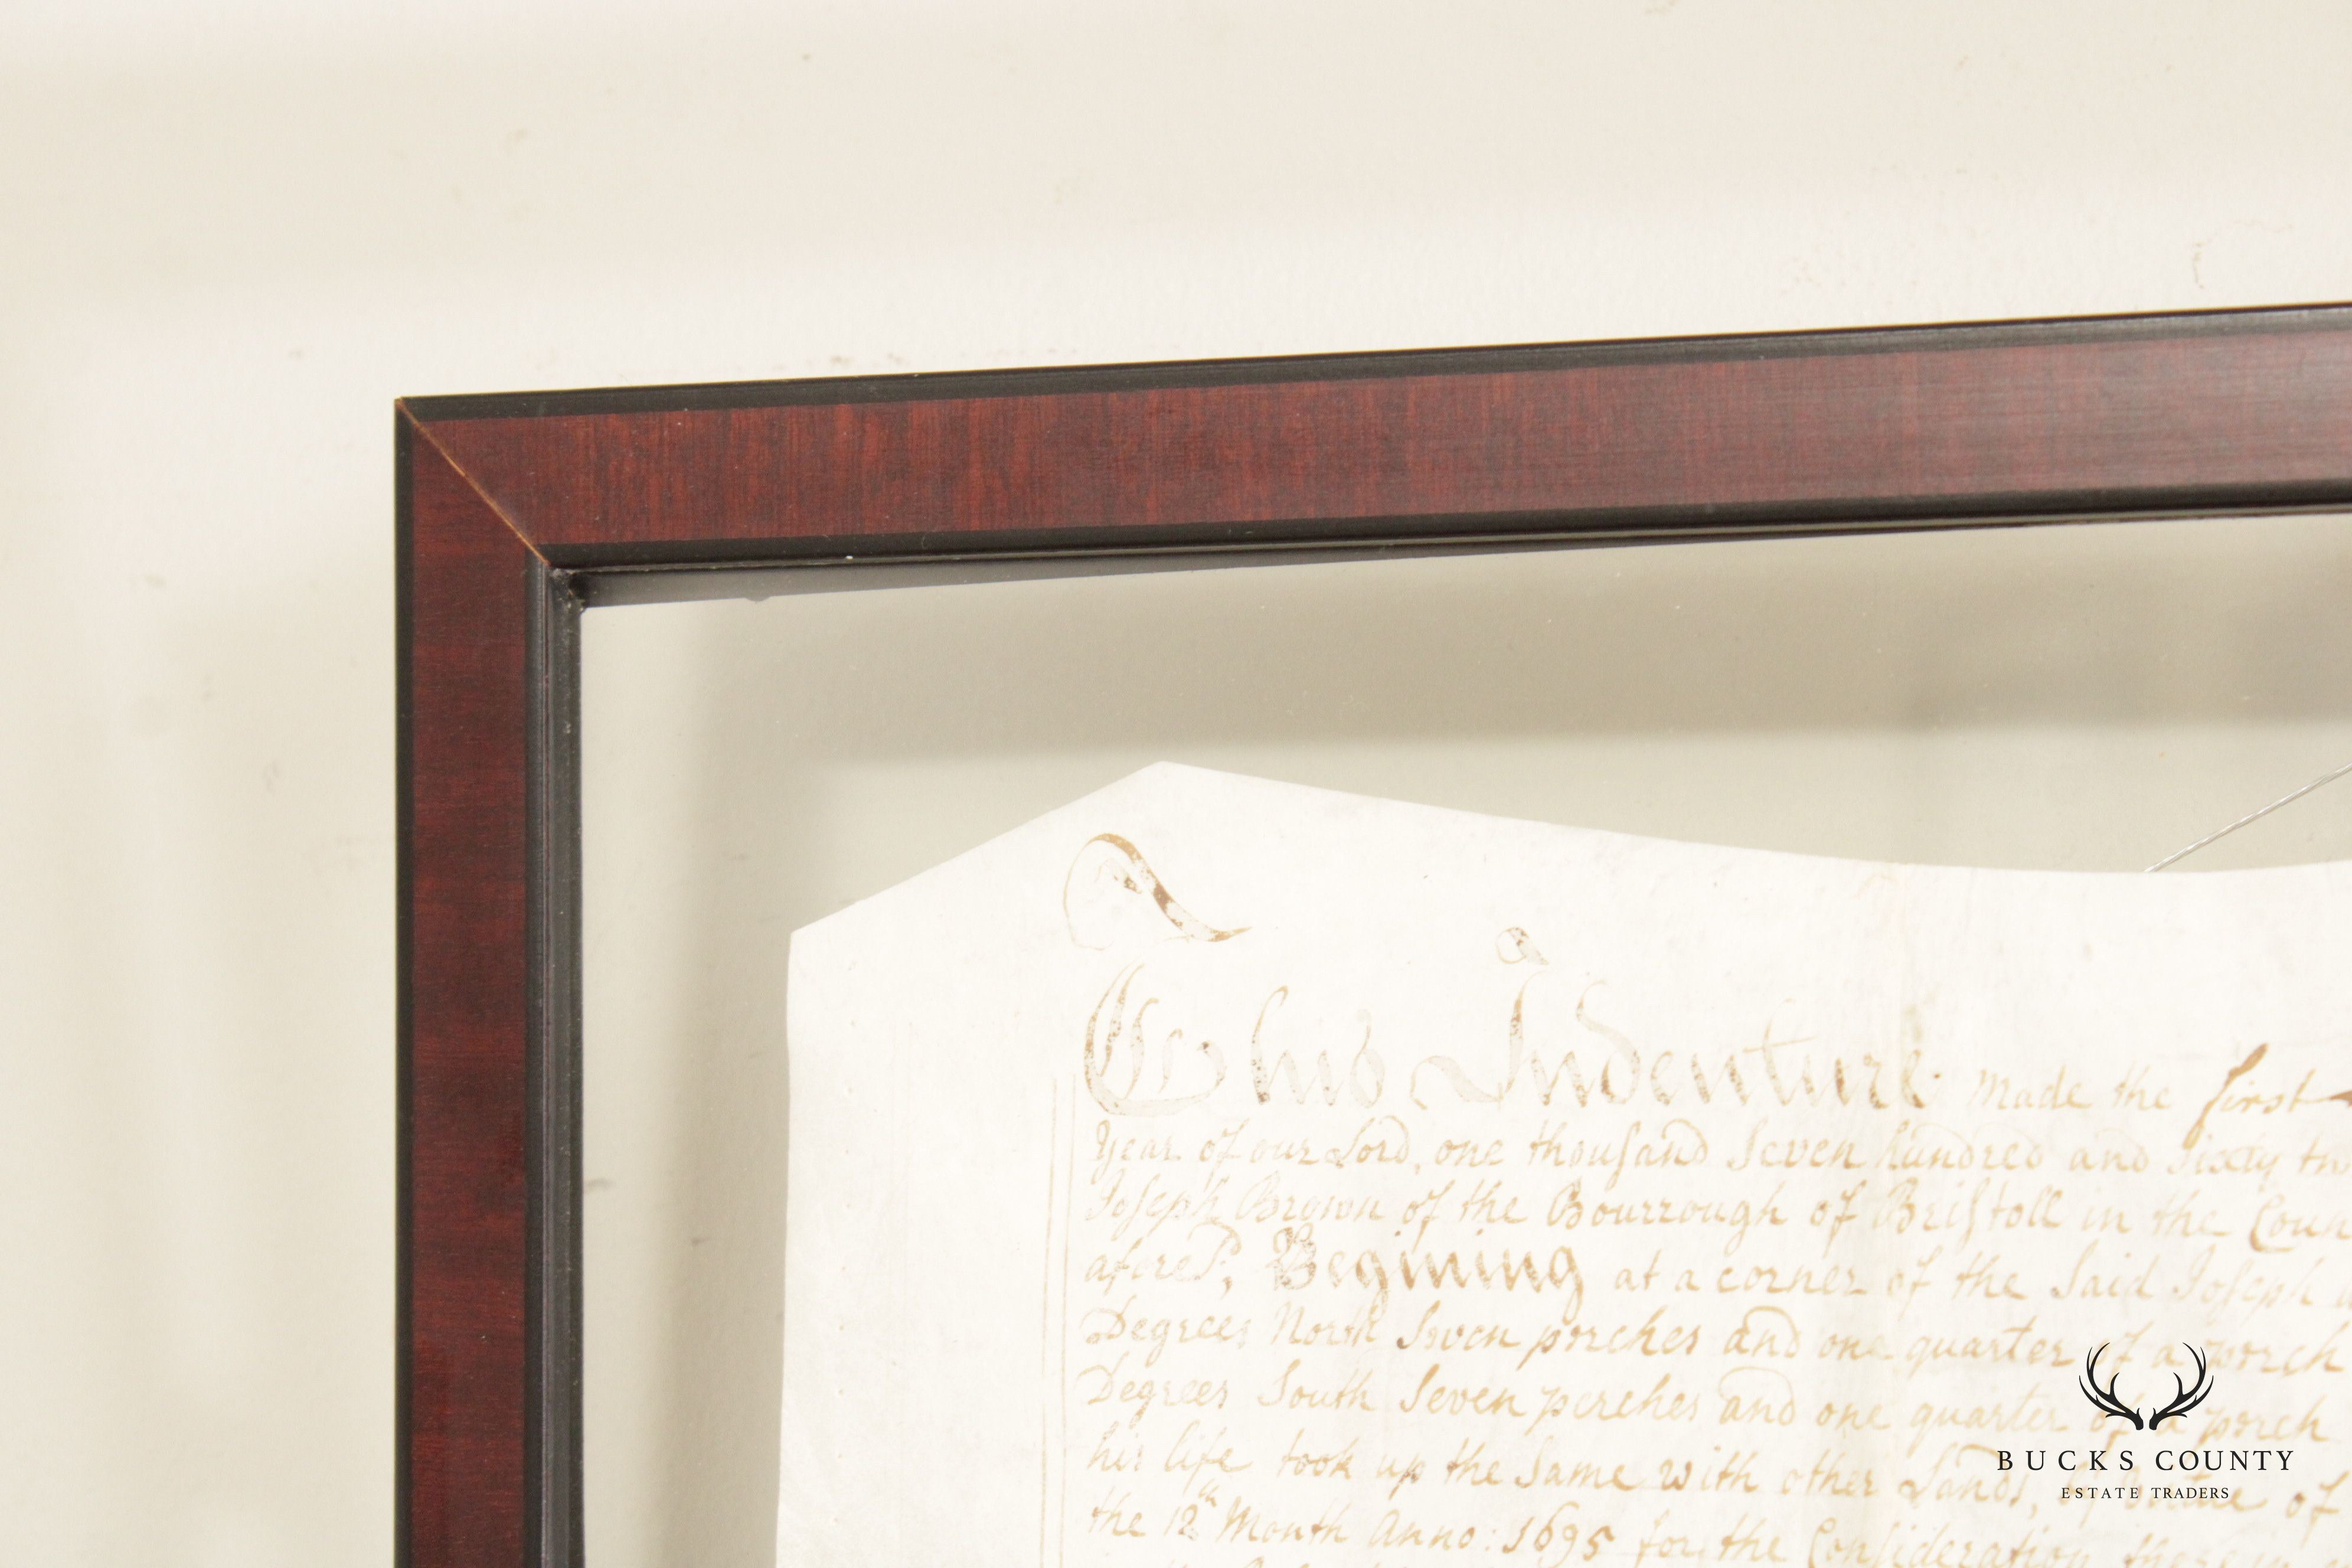 This Indenture Made the first
Year of our Lord, one thousand Seven hundred and Sixty
Joseph Brown of the Bourrough of Bristoll in the Coun
afores.d, Begining at a corner of the Said Joseph
Degrees North Seven perches and one quarter of a perch
Degrees South Seven perches and one quarter of a perch
his life took up the Same with other Lands, of
the 12th Month Anno: 1695 for the Consideration
BUCKS COUNTY
ESTATE TRADERS